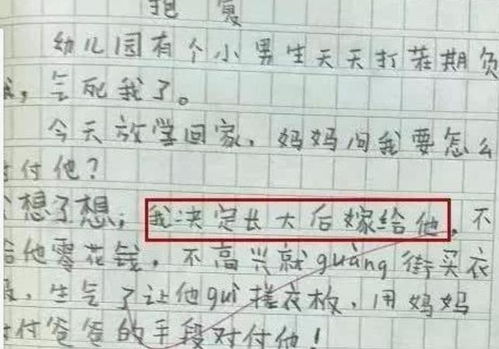 抱 复
幼儿园有个小男生天天打茬期负
我,气死我了。
今天放学回家,妈妈问我要怎么
对付他?
我想了想:我决定长大后嫁给他,不
给他零花钱,不高兴就guàng街买衣
服,生气了让他guì搓衣板,用妈妈
对付爸爸的手段对付他!